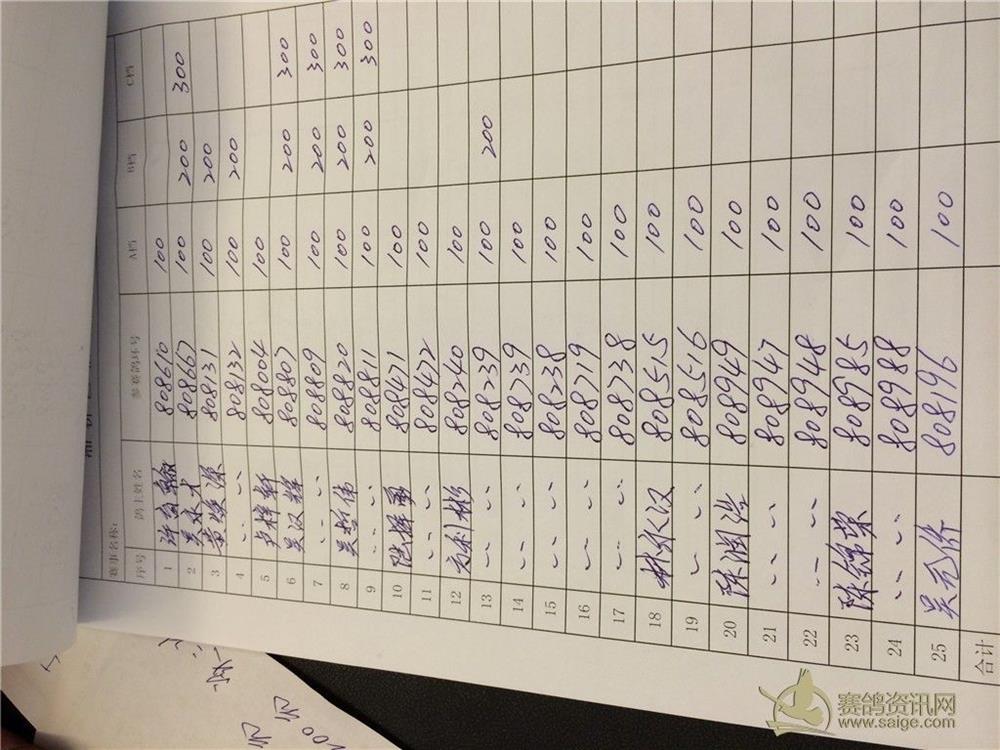 赛事名称:
序号 鸽主姓名 参赛鸽环号 A档 B档 C档
1 808610 100
2 吴永光 808667 100 200 300
3 808131 100 200
4 〃 808132 100 200
5 808004 100
6 吴汉辉 808807 100 200 300
7 〃 808809 100 200 300
8 吴哲伟 808820 100 200 300
9 〃 808811 100 200 300
10 陈辉勇 808471 100
11 〃 808472 100
12 方利彬 808240 100
13 〃 808239 100 200
14 〃 808739 100
15 〃 808238 100
16 〃 808719 100
17 〃 808738 100
18 林汉 808515 100
19 〃 808516 100
20 陈润浩 808949 100
21 〃 808947 100
22 〃 808948 100
23 陈锦荣 808985 100
24 〃 808988 100
25 吴 808196 100
合计
赛鸽资讯网
www.saige.com